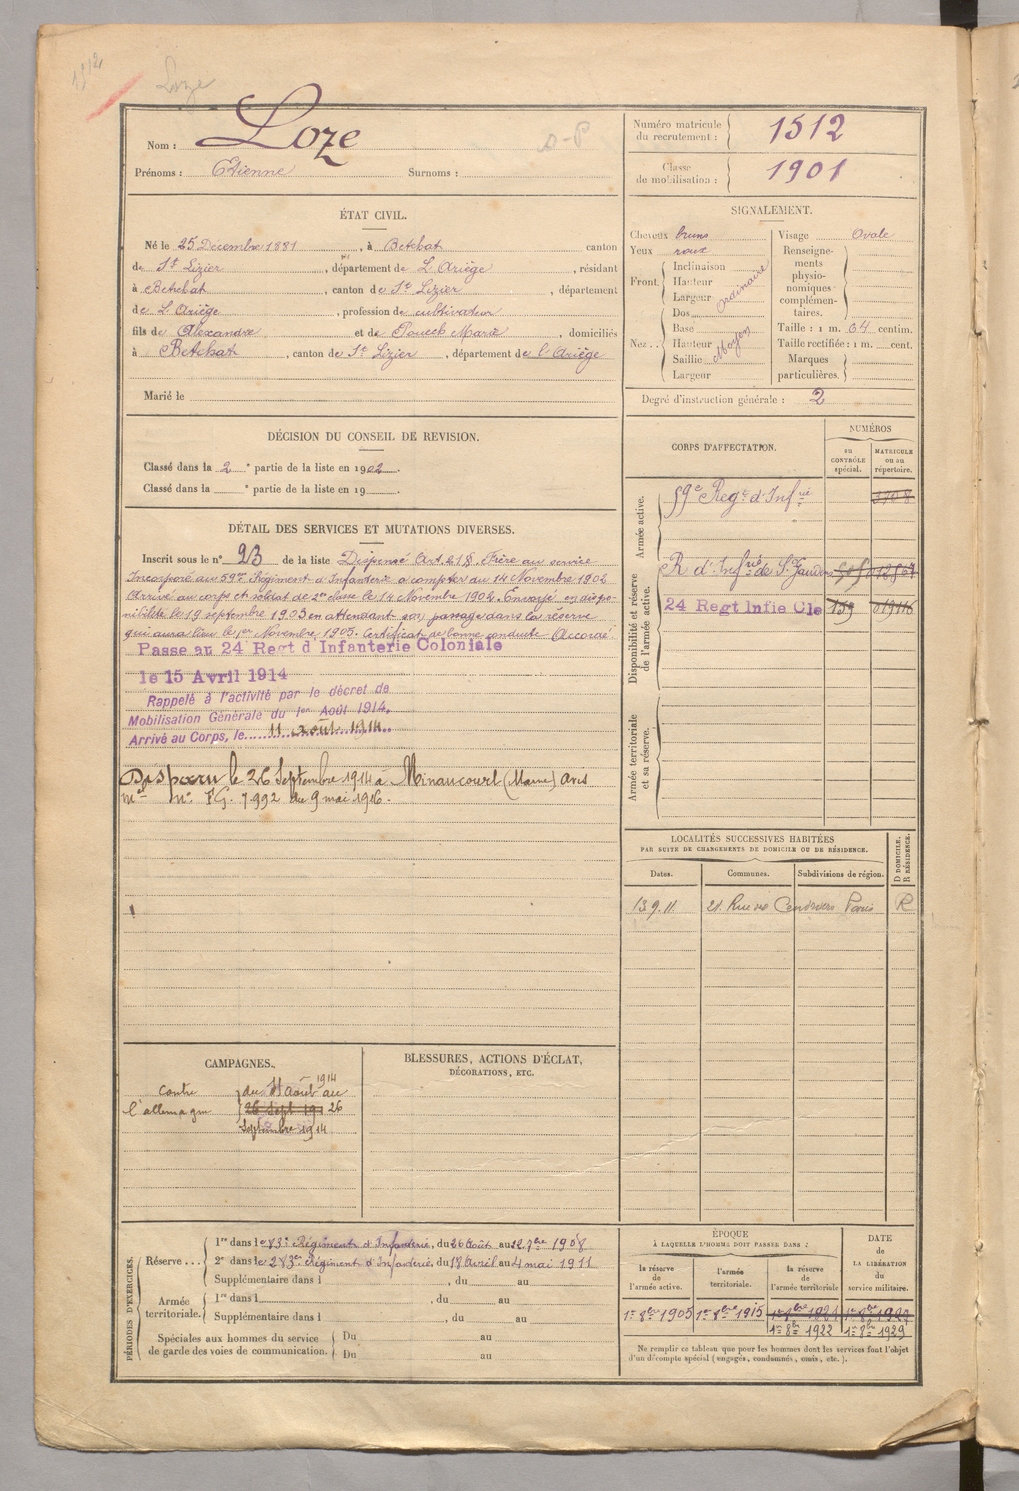 1512
Loze
Nom : Loze
D-P
Prénoms : Etienne Surnoms :
Numéro matricule du recrutement : 1512
Classe de mobilisation : 1901
ÉTAT CIVIL.
Né le 25 Décembre 1881, à Betchat canton
de St Lizier, département de L'Ariège, résidant
à Betchat, canton de St Lizier, département
de L'Ariège, profession de cultivateur
fils de Alexandre et de Pouech Marie, domiciliés
à Betchat, canton de St Lizier, département de l'Ariège
Marié le
SIGNALEMENT.
Cheveux bruns
Yeux roux
Front. Inclinaison Hauteur Largeur ordinaire
Nez .. Dos Base Hauteur Saillie Largeur Moyen
Visage Ovale
Renseignements physionomiques complémentaires.
Taille : 1 m. 64 centim.
Taille rectifiée : 1 m. cent.
Marques particulières.
Degré d'instruction générale : 2
DÉCISION DU CONSEIL DE REVISION.
Classé dans la 2e partie de la liste en 1902.
Classé dans la e partie de la liste en 19 .
DÉTAIL DES SERVICES ET MUTATIONS DIVERSES.
Inscrit sous le n° 23 de la liste Dispensé Art. 21 § Frère au service
Incorporé au 59me Régiment d'Infanterie à compter du 14 Novembre 1902
Arrivé au corps et soldat de 2me classe le 14 Novembre 1902. Envoyé en dispo-
nibilité le 19 septembre 1903 en attendant son passage dans la réserve
qui aura lieu le 1er Novembre 1905. Certificat de bonne conduite Accordé.
Passe au 24 Regt d'Infanterie Coloniale
le 15 Avril 1914
Rappelé à l'activité par le décret de
Mobilisation Générale du 1er Août 1914.
Arrivé au Corps, le 11 août 1914.
Disparu le 26 Septembre 1914 à Minaucourt (Marne) avis
mel n° FG. 7992 du 9 mai 1916.
CORPS D'AFFECTATION.
NUMÉROS
au CONTRÔLE spécial.
MATRICULE ou au répertoire.
Armée active.
59e Regt d'Infrie
Disponibilité et réserve de l'armée active.
R. d'Infrie de St Gaudens
24 Regt Infie Cle 139 019116
Armée territoriale et sa réserve.
LOCALITÉS SUCCESSIVES HABITÉES
PAR SUITE DE CHANGEMENTS DE DOMICILE OU DE RÉSIDENCE.
Dates. Communes. Subdivisions de région. D DOMICILE. R RÉSIDENCE.
13.9.11. 21. Rue des Cendriers Paris R
CAMPAGNES.
contre l'allemagne du 11 août 1914 au
26 Sept 191 26
Septembre 1914
BLESSURES, ACTIONS D'ÉCLAT,
DÉCORATIONS, ETC.
PÉRIODES D'EXERCICES.
Réserve ... 1re dans le 83e Régiment d'Infanterie, du 26 Août au 22 7bre 1908
2e dans le 283e Régiment d'Infanterie, du 18 Avril au 4 mai 1911
Supplémentaire dans l , du au
Armée territoriale. 1re dans l , du au
Supplémentaire dans l , du au
Spéciales aux hommes du service de garde des voies de communication. Du au
Du au
ÉPOQUE
À LAQUELLE L'HOMME DOIT PASSER DANS :
la réserve de l'armée active. l'armée territoriale. la réserve de l'armée territoriale
DATE de LA LIBÉRATION du service militaire.
1er 8bre 1905 1er 8bre 1915 1er 8bre 1921 1er 8bre 1927
1er 8bre 1922 1er 8bre 1929
Ne remplir ce tableau que pour les hommes dont les services font l'objet
d'un décompte spécial (engagés, condamnés, omis, etc.).